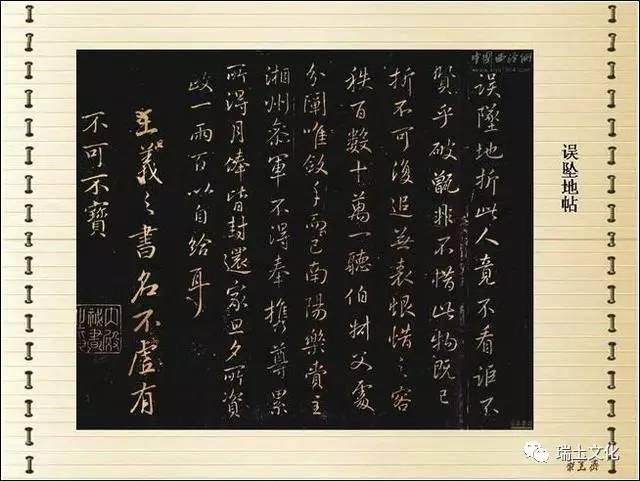 误坠地帖
误墜地折此人竟不看詎不
賢乎破甑非不惜此物既已
折不可復追並衰恨惜之容
秩百數十萬一聽伯父處
分闡唯斂手而已南陽樂貴主
湘州參軍不得奉攜尊累
所得月俸皆封還家旦夕所資
政一兩百以自給耳
王羲之書名不虛有
不可不寶
內殿
祕書
之印
瑞土文化